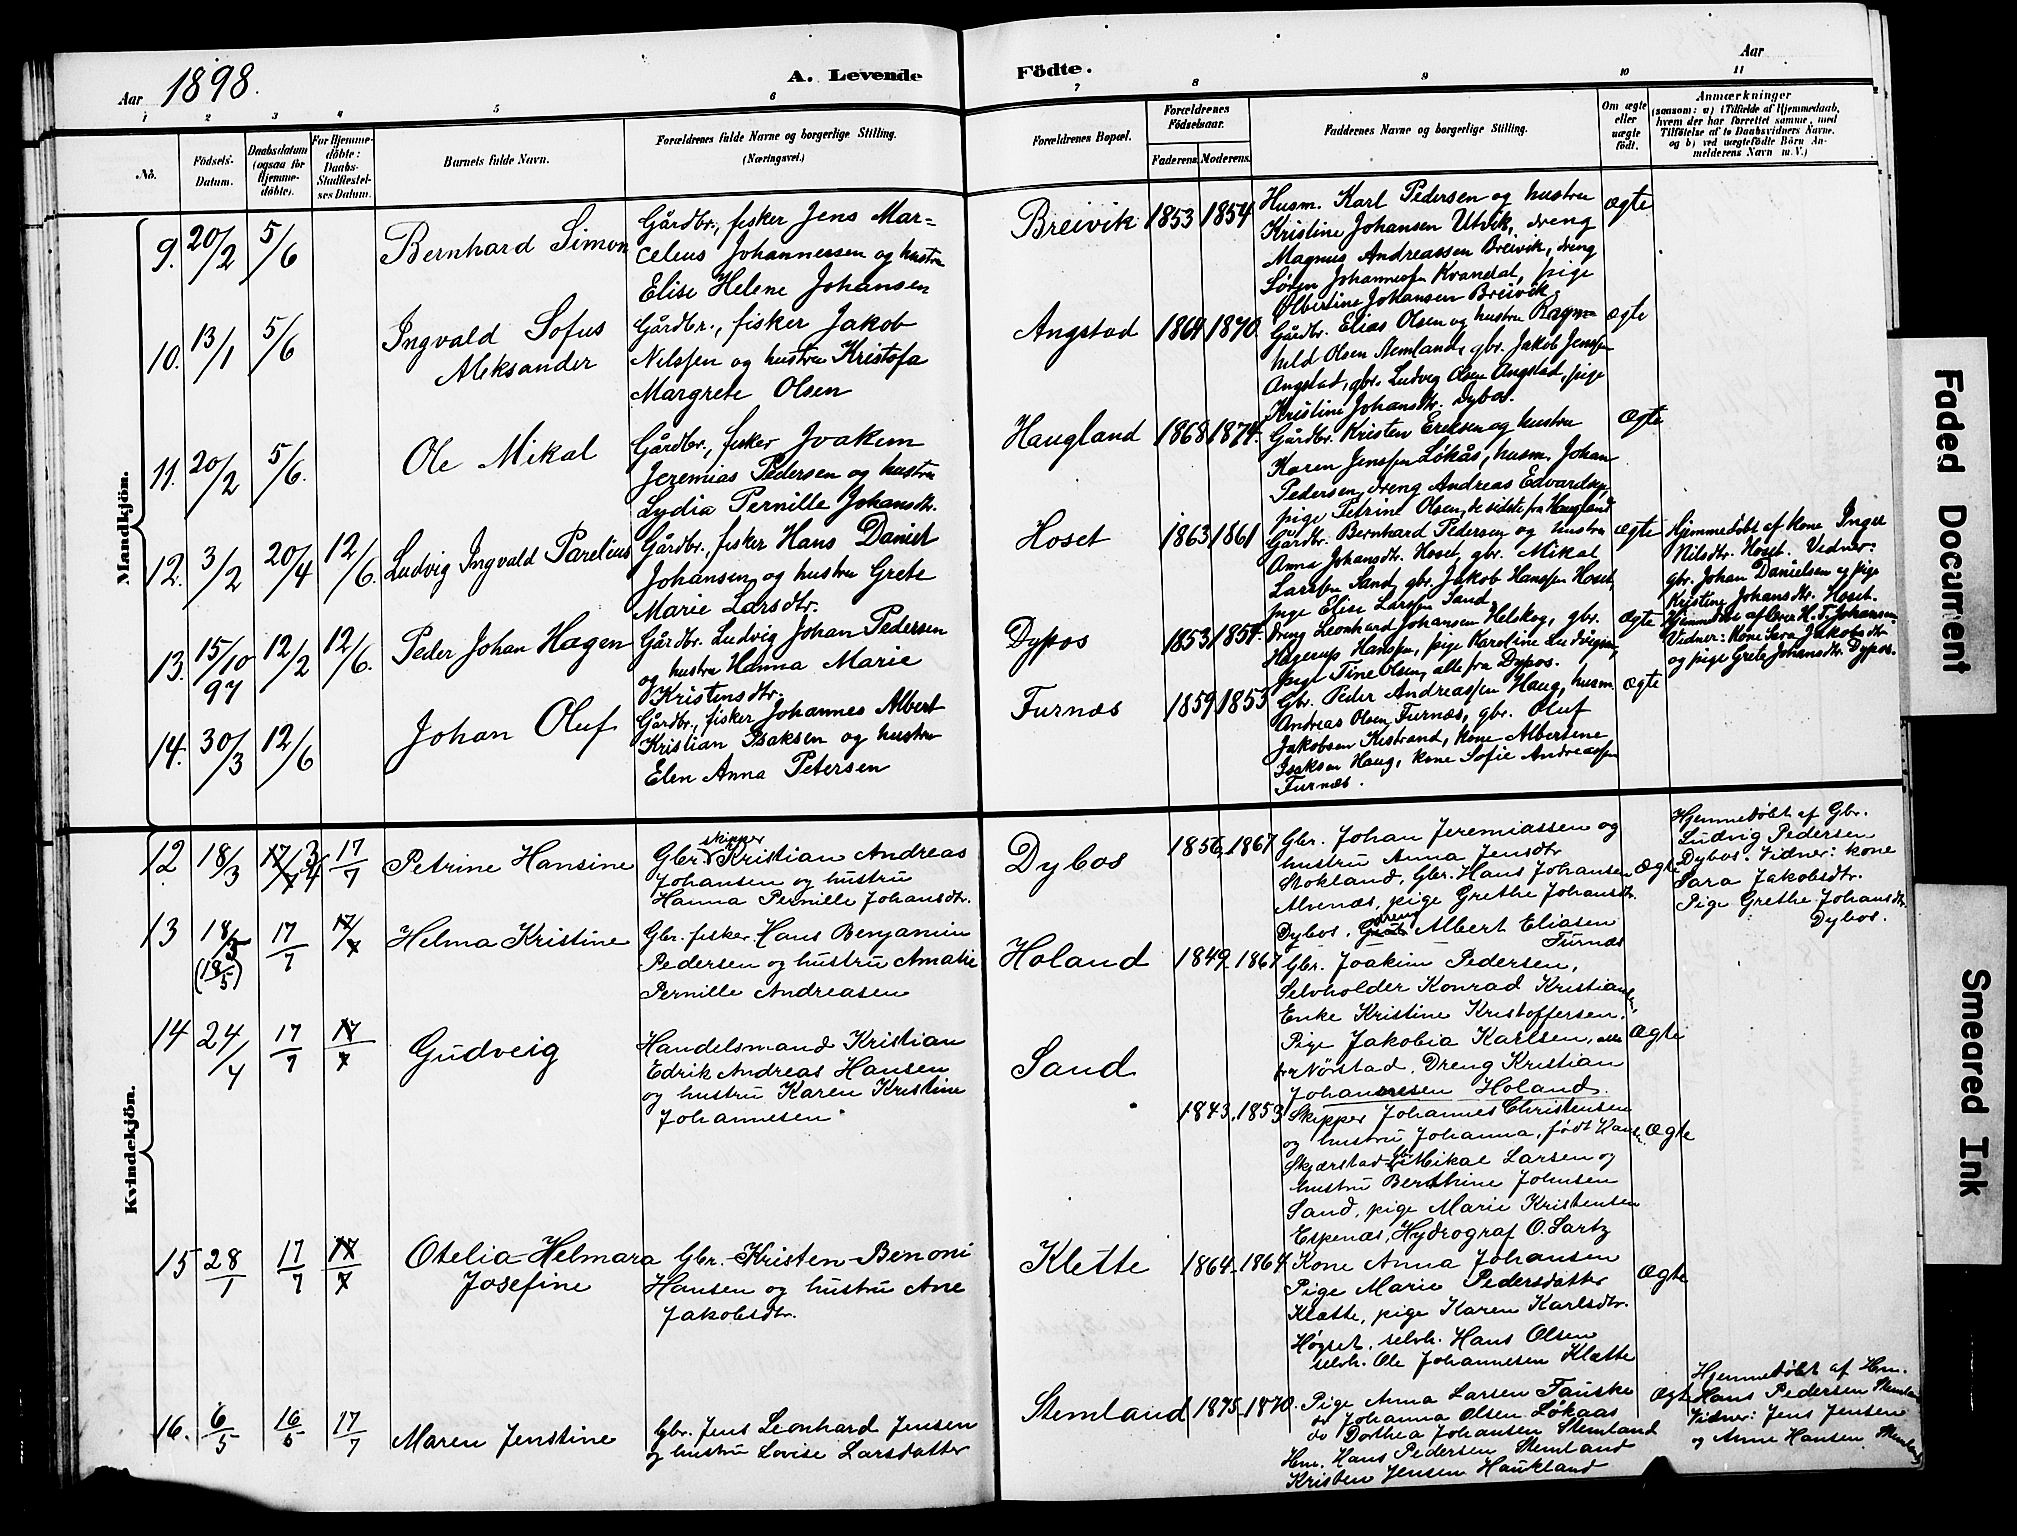 Aar 1898.
A. Levende Födte.
Aar
1 2 3 4 5 6 7 8 9 10 11
No.
Födsels-Datum.
Daabsdatum (ogsaa for Hjemmedöbte).
For Hjemmedöbte: Daabs-Stadfestelses Datum.
Barnets fulde Navn.
Forældrenes fulde Navne og borgerlige Stilling.
(Næringsvei.)
Forældrenes Bopæl.
Forældrenes Födselsaar.
Faderens. Moderens.
Faddernes Navne og borgerlige Stilling.
Om ægte eller uægte födt.
Anmærkninger
(saasom: a) i Tilfælde af Hjemmedaab, hvem der har forrettet samme, med Tilföielse af to Daabsvidners Navne, og b) ved uægtefödte Börn Anmelderens Navn m. V.)
Mandkjön.
9. 20/2 5/6 Bernhard Simon
Gårdbr., fisker Jens Mar-
celius Johannessen og hustru
Elise Helene Johansen
Breivik 1853 1854
Husm. Karl Pedersen og hustru
Kristine Johansen Utvik, dreng
Magnus Andreassen Breivik, dreng
Søren Johannessen Kvandal, pige
Olbertine Johansen Breivik.
ægte
10. 13/1 5/6 Ingvald Sofus
Aleksander
Gårdbr., fisker Jakob
Nilssen og hustru Kristofa
Margrete Olsen
Angstad 1864 1870.
Gårdbr. Elias Olsen og hustru Ragn-
hild Olsen Stemland, gbr. Jakob Jenssen
Angstad, gbr. Ludvig Olsen Angstad, pige
Kristine Johansdtr. Dybos.
ægte
11. 20/2 5/6. Ole Mikal
Gårdbr., fisker Joakim
Jeremias Pedersen og hustru
Lydia Pernille Johansdtr.
Haugland 1868 1874.
Gårdbr. Kristen Eriksen og hustru
Karen Jenssen Løkås, husm. Johan
Pedersen, dreng Andreas Edvardsen,
pige Petrine Olsen, de sidste fra Haugland
ægte
12. 3/2 20/4 12/6. Ludvig Ingvald Parelius
Gårdbr., fisker Hans Daniel
Johansen og hustru Grete
Marie Larsdtr.
Hoset 1863 1861
Gårdbr. Bernhard Pedersen og hustru
Anna Johansdtr. Hoset, gbr. Mikal
Larssen Sand, gbr. Jakob Hanssen Hoset,
pige Elise Larssen Sand,
ægte
Hjemmedøbt af kone Inger
Nilsdtr. Hoset. Vidner:
gbr. Johan Danielsen og pige
Kristine Johansdtr. Hoset.
13. 15/10 97 12/2 12/6. Peder Johan Hagen
Gårdbr. Ludvig Johan Pedersen
og hustru Hanna Marie
Kristensdtr.
Dypos 1853 1854.
dreng Leonhard Johansen Helskog, gbr.
Hagerup Hanssen, pige Karoline Ludvigsen,
pige Tine Olsen, alle fra Dypos.
ægte
Hjemmedøbt af lærer H. T. Johansen
Vidner: kone Sara Jakobsdtr.
og pige Grete Johansdtr. Dypos.
14. 30/3 12/6 Johan Oluf
Gårdbr., fisker Johannes Albert
Kristian Isaksen og hustru
Elen Anna Petersen
Furnæs 1859 1853
Gbr. Peder Andreassen Haug, husm.
Andreas Olsen Furnæs, gbr. Oluf
Jakobsen Kistrand, kone Albertine
Isaksen Haug, kone Sofie Andreassen
Furnæs.
ægte
Kvindekjön.
12. 18/3 17/7 3/4 17/7 Petrine Hansine
skipper
Gbr. Kristian Andreas
Johansen og hustru
Hanna Pernille Johansdtr.
Dybos 1856 1867
Gbr. Johan Jeremiassen og
hustru Anna Jensdtr
Stokland, Gbr. Hans Johansen
Alvenæs, pige Grethe Johansdtr.
Dybos, dreng Albert Eliasen
Furnæs
Ægte
Hjemmedøbt af Gbr.
Ludvig Pedersen
Dybos. Vidner: kone
Sara Jakobsdtr.
Pige Grethe Johansdtr.
Dybos.
13 18/5 (18/5) 17/7 17/7 Helma Kristine
Gbr. fisker Hans Benjamin
Pedersen og hustru Amalie
Pernille Andreasen
Holand 1849 1867
Gbr. Joakim Pedersen,
Selvholder Konrad Kristiansen,
Enke Kristine Kristoffersen.
Pige Jakobia Karlsen, alle
fra Nørstad, Dreng Kristian
Johannesen Holand.
Ægte
14 24/4 17/7 17/7 Gudveig
Handelsmand Kristian
Edrik Andreas Hansen
og hustru Karen Kristine
Johannesen
Sand
1843. 1853
Skipper Johannes Christensen
og hustru Johanna, født Hansen
Skjærstad, Gbr Mikal Larsen og
hustru Berthine Johnsen
Sand, pige Marie Kristensen
Espenæs, Hydrograf O. Sartz
Ægte
15 28/1 17/7 17/7 Otelia Helmara
Josefine
Gbr. Kristen Benoni
Hansen og hustru Ane
Jakobsdtr.
Klette 1864. 1864
Kone Anna Johansen
Pige Marie Pedersdatter
Klætte, pige Karen Karlsdtr.
Høgset, selvh. Hans Olsen
selvh. Ole Johannesen Klætte
Ægte
16. 6/5 16/6 17/7 Maren Jenstine
Gbr. Jens Leonhard Jensen
og hustru Lovise Larsdatter
Stemland 1875 1870.
Pige Anna Larsen Fauske
do Johanna Olsen Løkaas
do Dorthea Johansen Stemland
Hm. Hans Pedersen Stemland
Kristen Jensen Haukland
Ægte
Hjemmedøbt af Hm.
Hans Pedersen Stemland
Vidner: Jens Jensen
og Anne Hansen Stemland
Faded Document
Smeared Ink